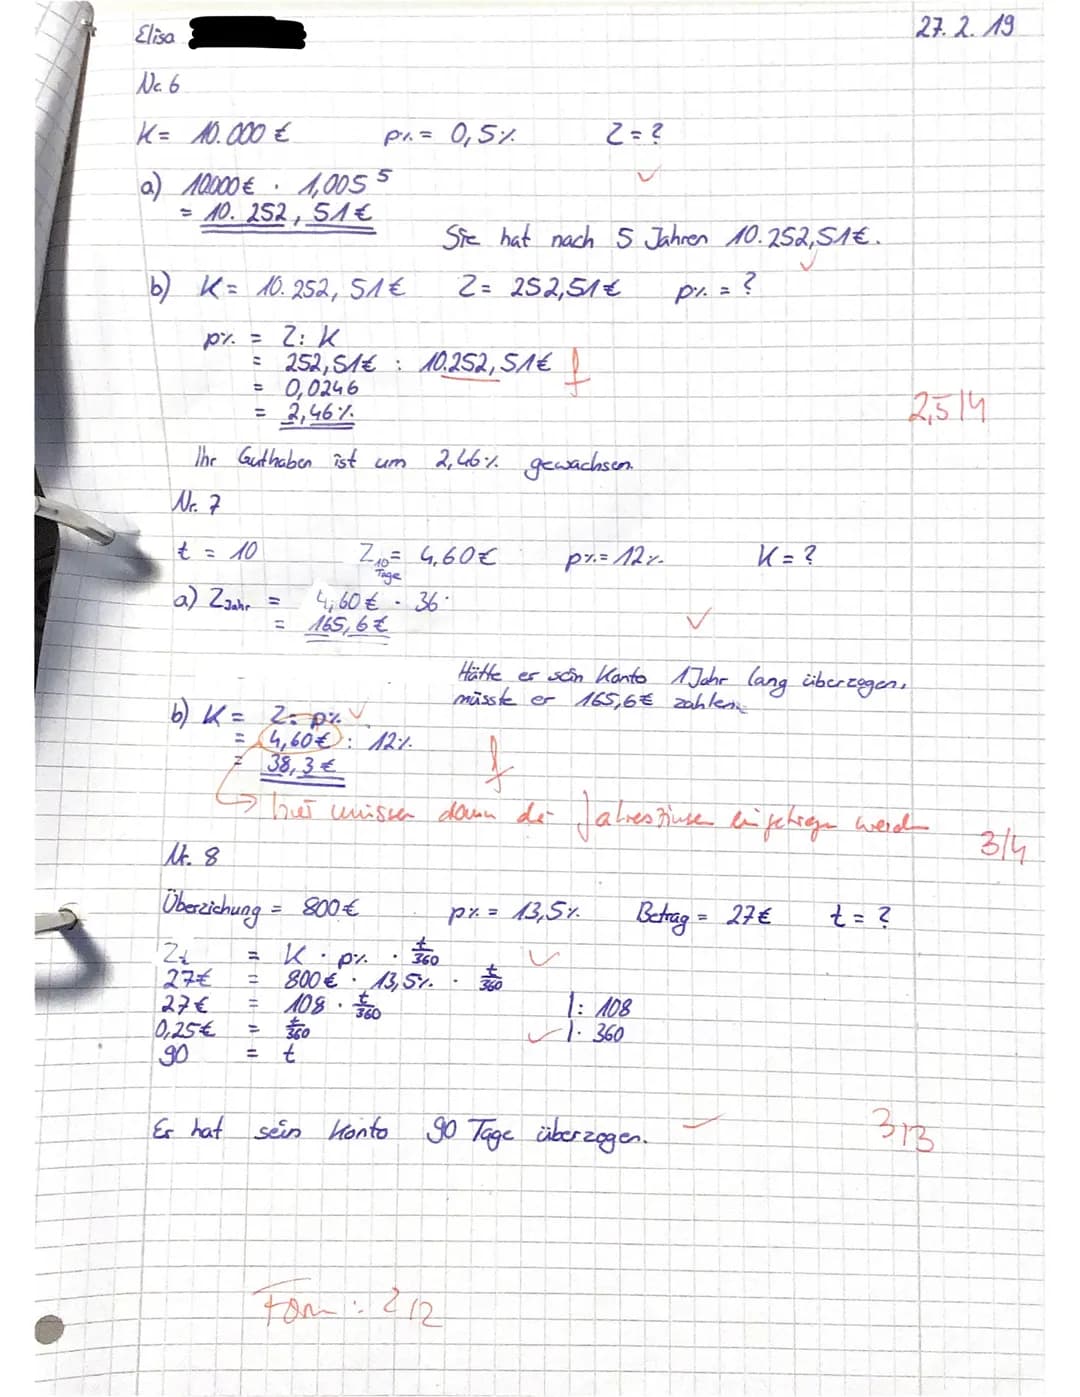 Elisa
27. 2. 19
Nr. 6
K = 10.000 € p% = 0,5% Z = ?
a) 10000 € · 1,005⁵
= 10. 252, 51 €
Sie hat nach 5 Jahren 10.252,51€.
b) K = 10. 252, 51 € Z = 252,51€ p% = ?
p% = Z : K
= 252,51€ : 10.252,51€ f
= 0,0246
= 2,46%
2,5/4
Ihr Guthaben ist um 2,46% gewachsen.
Nr. 7
t = 10 Z 10 Tage = 4,60€ p% = 12% K = ?
a) Z Jahr = 4,60€ · 36
= 165,6€
Hätte er sein Konto 1 Jahr lang überzogen,
müsste er 165,6€ zahlen.
b) K = Z : p%
= 4,60€ : 12%
= 38,3€ f
hier müssen dann die Jahreszinsen eingetragen werden
3/4
Nr. 8
Überziehung = 800€ p% = 13,5% Betrag = 27€ t = ?
Zt = K · p% · t/360
27€ = 800€ · 13,5% · t/360
27€ = 108 · t/360 |: 108
0,25€ = t/360 |· 360
90 = t
Er hat sein Konto 90 Tage überzogen.
3/3
Form : 2/2